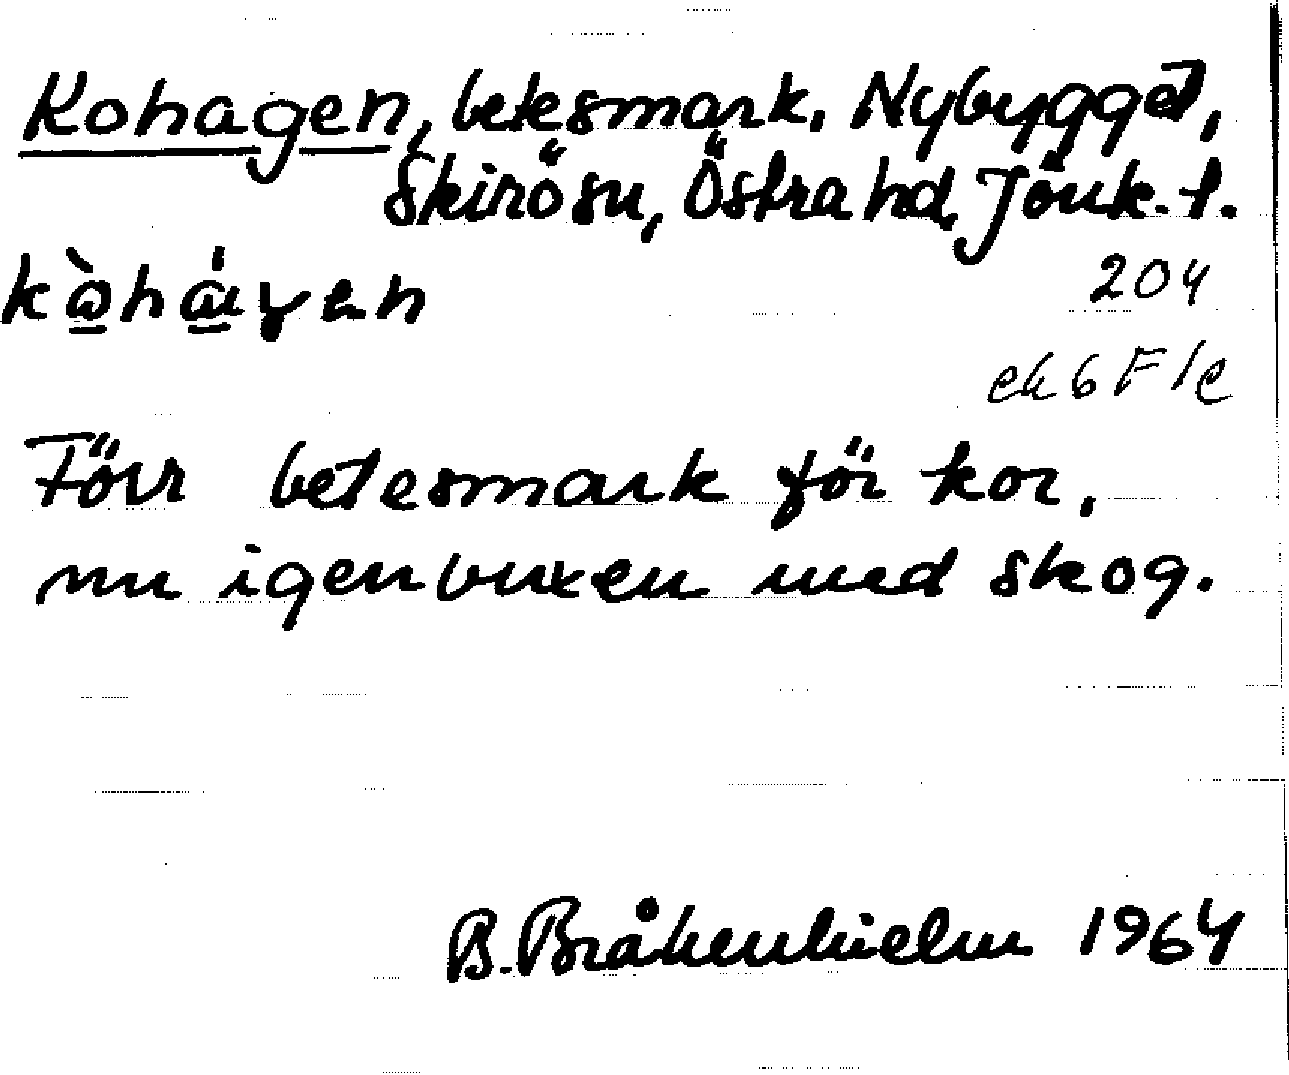 Kohagen, betesmark, Nybygget,
Skirö sn, Östra hd, Jönk. l.
204
ek 6 F 1e
Förr betesmark för kor,
nu igenvuxen med skog.
B. Bråkenhielm 1964